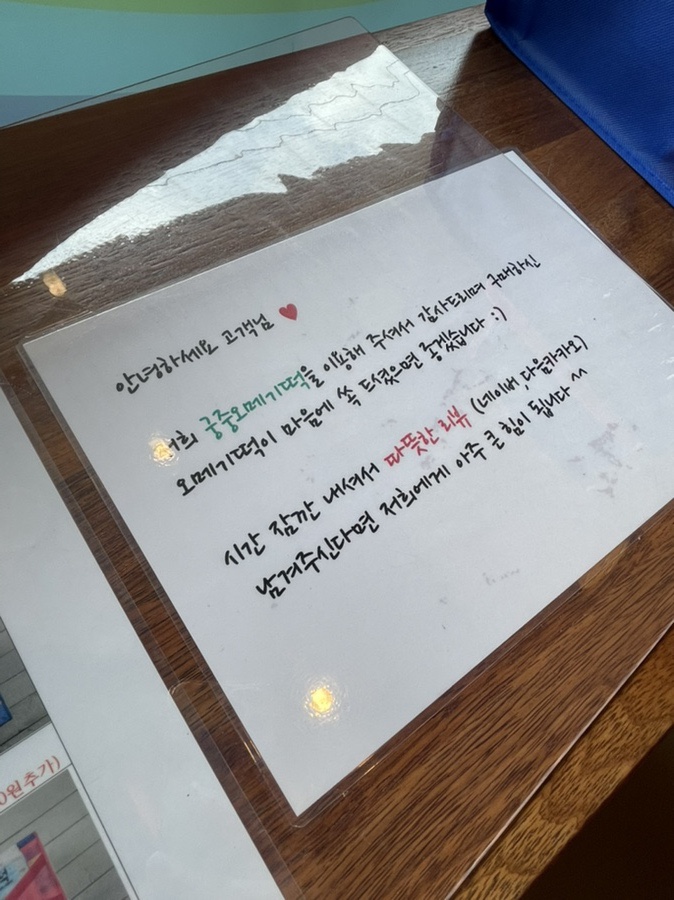 안녕하세요 고객님 ♥
저희 궁중오메기떡을 이용해 주셔서 감사드리며 구매하신
오메기떡이 마음에 쏙 드셨으면 좋겠습니다 :)
시간 잠깐 내셔서 따뜻한 리뷰 (네이버, 다음카카오)
남겨주신다면 저희에게 아주 큰 힘이 됩니다 ^^
0원 추가)